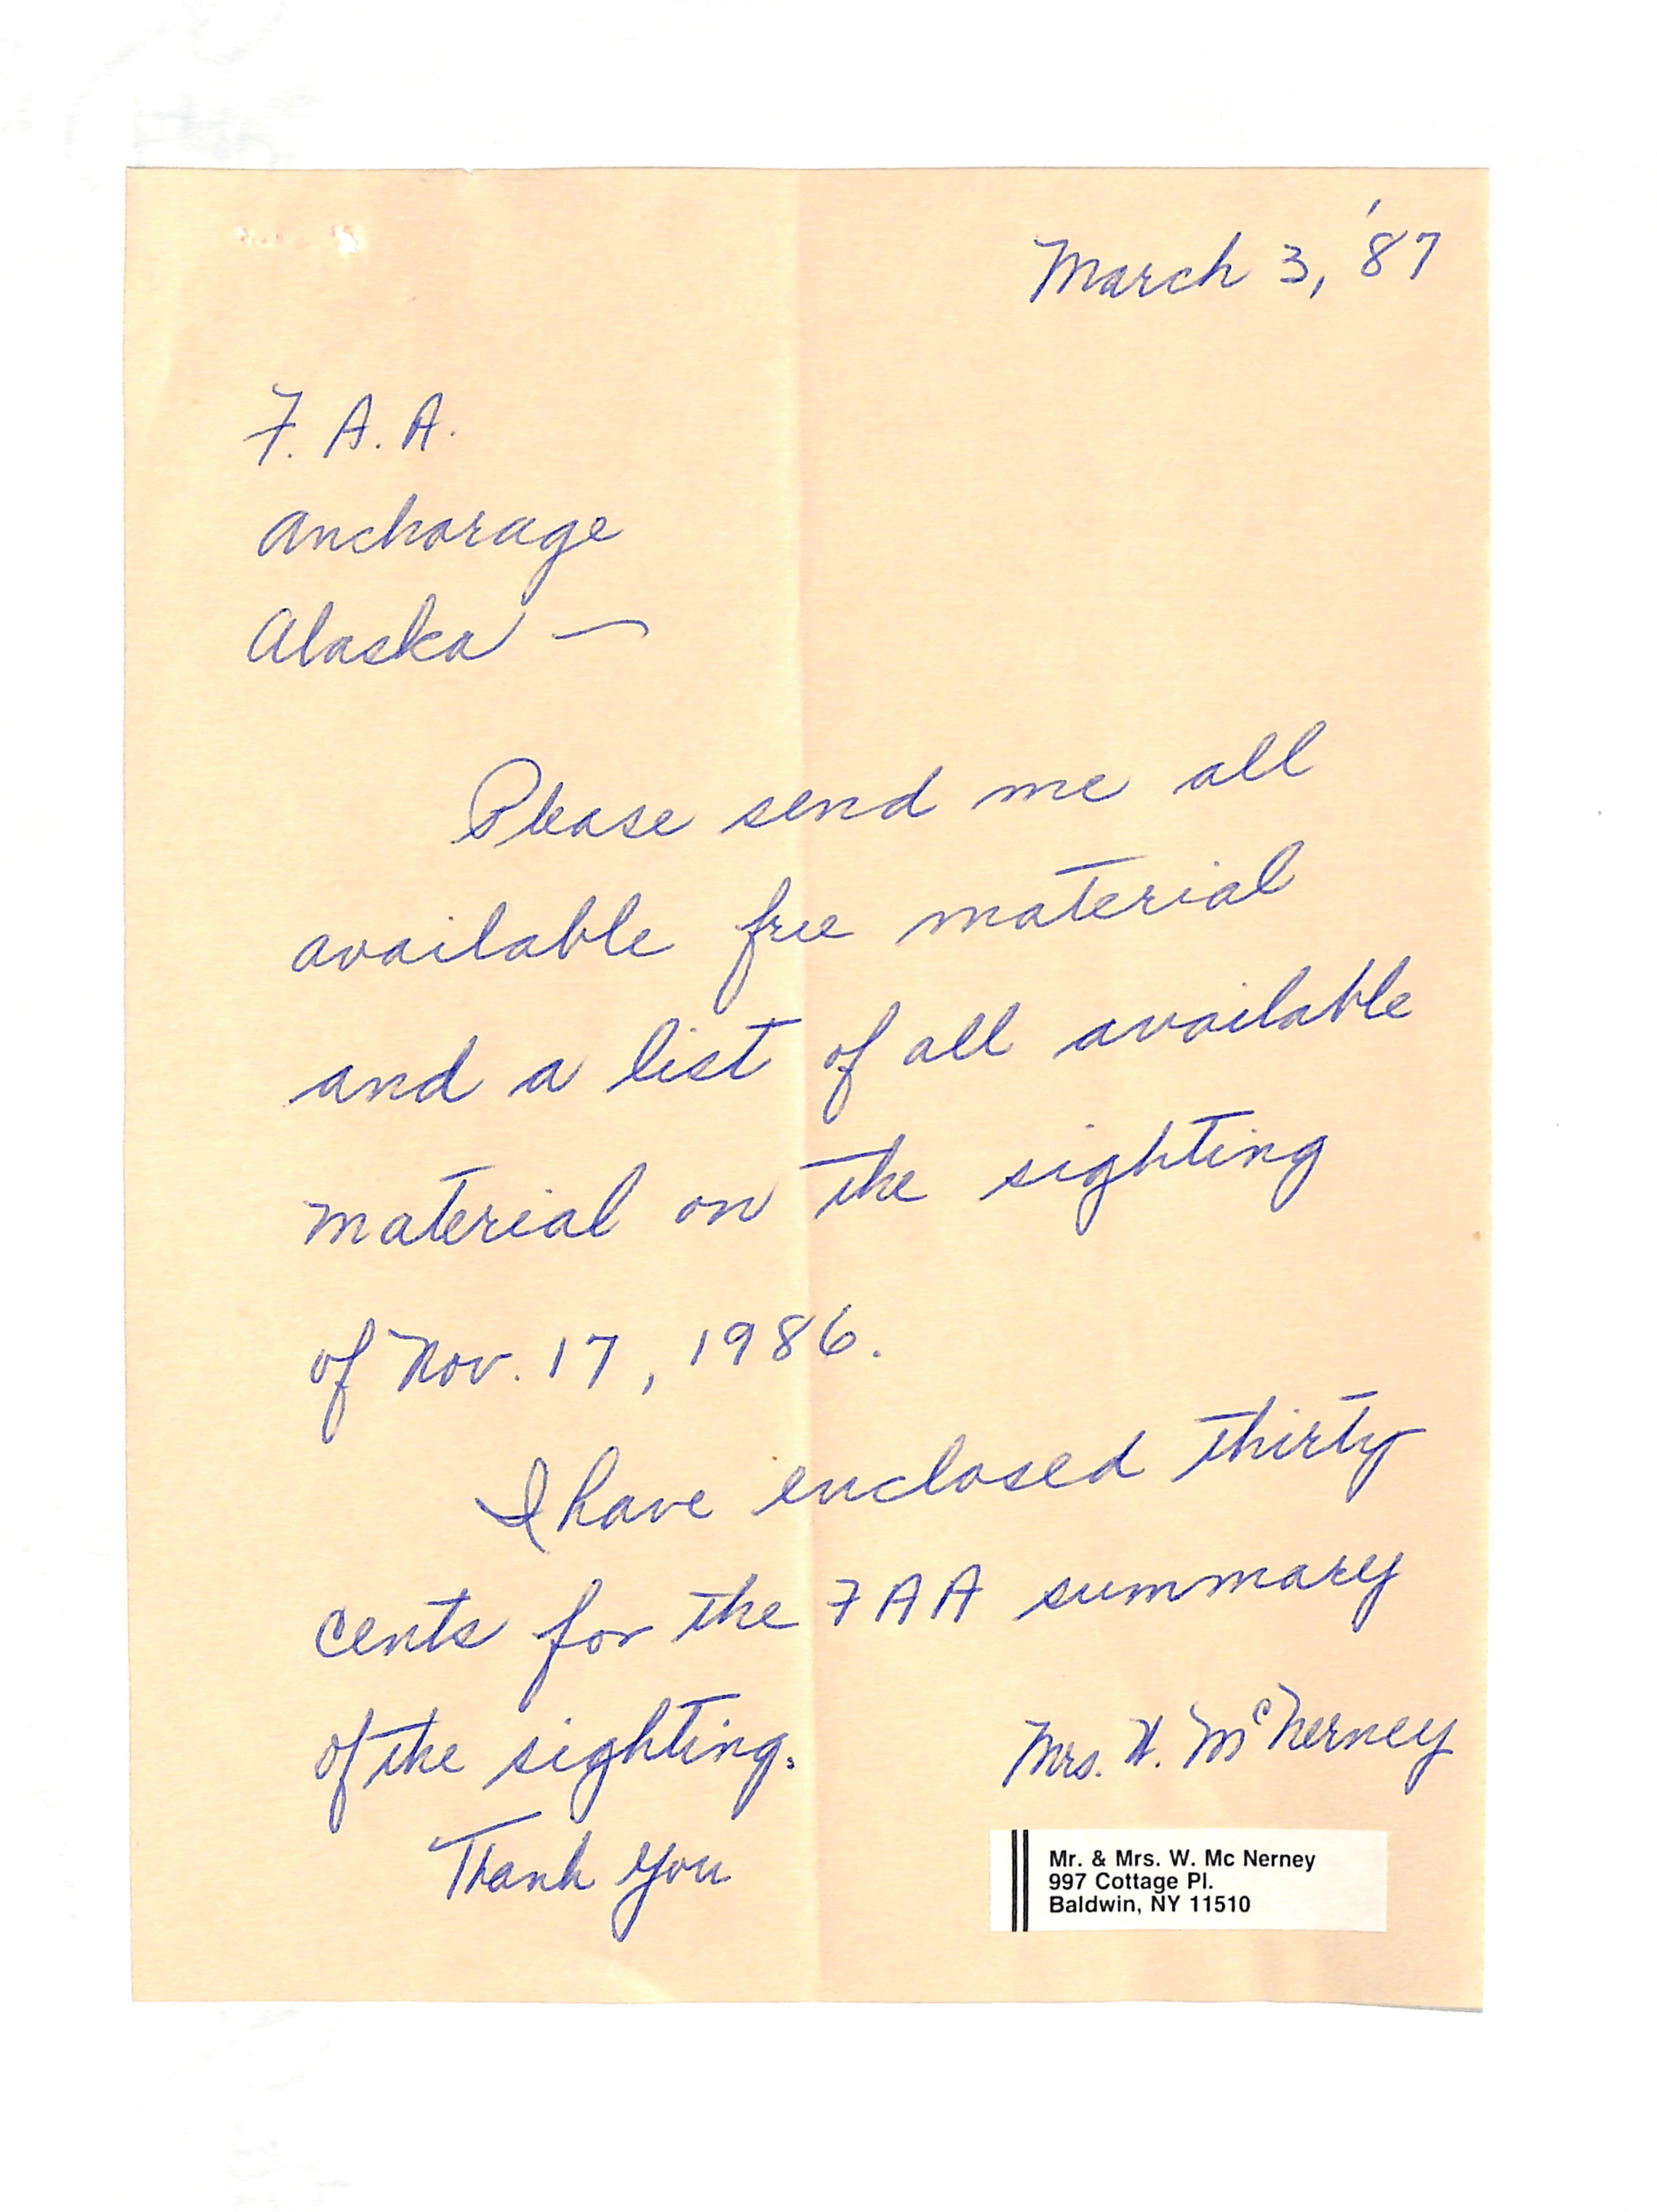 March 3, '87
F. A. A.
Anchorage
Alaska —
Please send me all
available free material
and a list of all available
material on the sighting
of Nov. 17, 1986.
I have enclosed thirty
cents for the FAA summary
of the sighting.
Mrs. W. McNerney
Thank You
Mr. & Mrs. W. Mc Nerney
997 Cottage Pl.
Baldwin, NY 11510